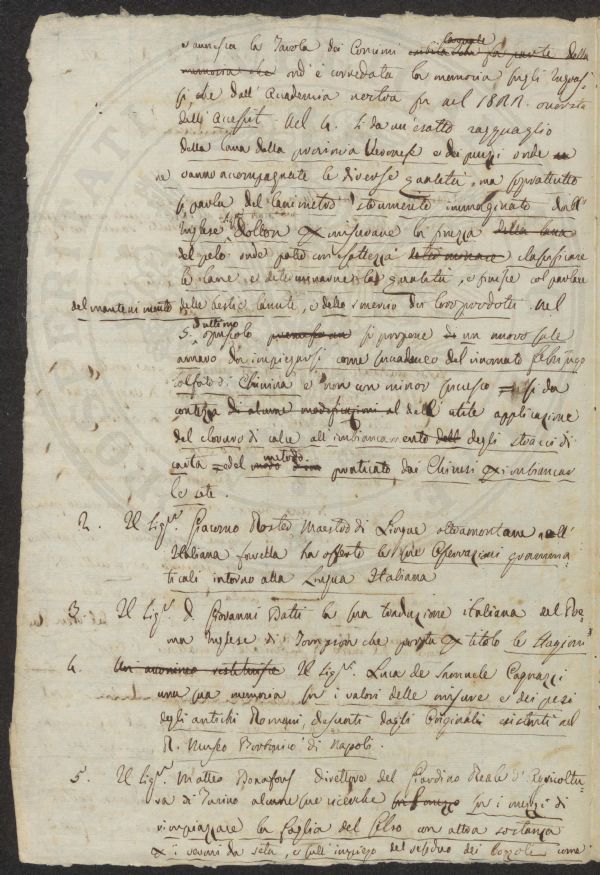 e annessa la Tavola dei Concimi
memoria che ond'è corredata la memoria sugli Ingras-
si, che dall'Accademia nostra fu nel 18 onorata
dell'accessit. Nel 4. si da un'esatto ragguaglio
della lana della provincia Veronese e dei prezzi onde
ne vanno accompagnate le diverse qualità, ma soprattutto
si parla del lanimetro strumento immaginato dall'
Inglese Dollon per misurare la finezza della lana
del pelo onde poter con esattezza classificare
le lane e determinarne le qualità, e finisce col parlare
del mantenimento delle bestie lanute, e dello smercio dei loro prodotti. Nel
5. ed ultimo opuscolo si propone di un nuovo sale
amaro da impiegarsi come succedaneo del rinomato febrifugo
solfato di Chinina e non con minor successo = si da
contezza di alcune modificazioni al dell'utile applicazione
del cloruro di calce all'imbiancamento dell degli stracci di
carta = del metodo praticato dai Chinesi per imbiancar
le sete.
2. Il Sig.r Giacomo Rosted Maestro di Lingue oltramontane nell'
Italiana favella ha offerto le sue Osservazioni gramma-
ticali intorno alla Lingua Italiana
3. Il Sig.r D. Giovanni Batti la sua traduzione italiana del Poe-
ma Inglese di Tompson che porta per titolo le Stagioni
4. Un anonimo Il Sig.r Luca de Samuele Cagnazzi
una sua memoria su i valori delle misure e dei pesi
degli antichi Romani, desunti dagli Originali esistenti nel
R. Museo Borbonico di Napoli.
5. Il Sig.r Matteo Bonafous Direttore del Giardino Reale d'Agricoltu-
ra di Torino alcune sue ricerche su i mezzi di
rimpiazzare la foglia del Gelso con altra sostanza
per i vermi da seta, e sull'impiego del residuo dei Bozzoli come